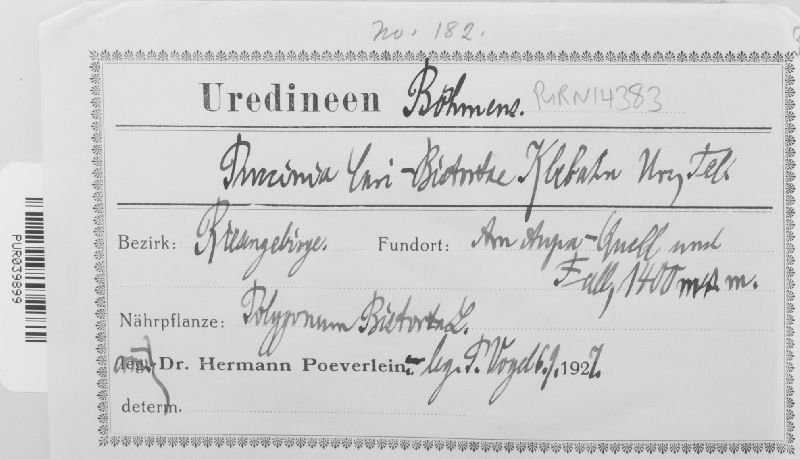 No. 182.
Uredineen Böhmens. PURN14383
Puccinia Cari-Bistortae Klebahn Ur., Tel.
Bezirk: Riesengebirge. Fundort: Am Aupa-Quell und
Fall, 1400 m.
Nährpflanze: Polygonum Bistorta L.
leg. Dr. Hermann Poeverlein. leg. P. Vogel 6.9.1927.
determ.
PUR039899